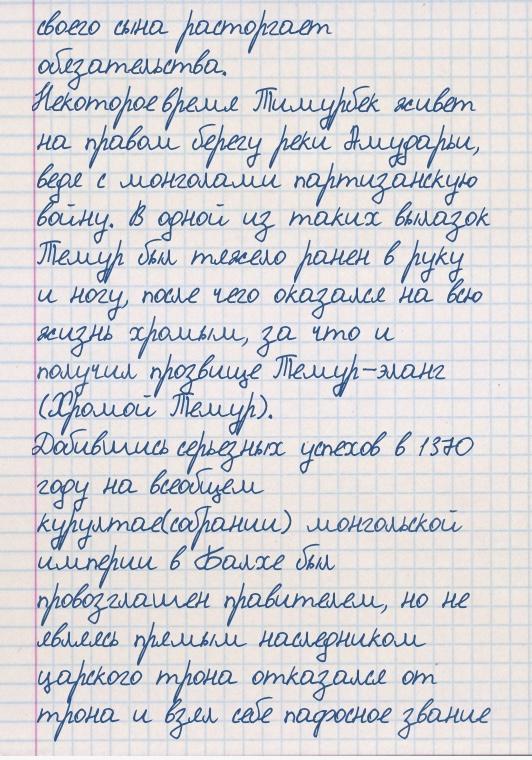 своего сына расторгает
обязательства.
Некоторое время Тимурбек живет
на правом берегу реки Амударьи,
ведя с монголами партизанскую
войну. В одной из таких вылазок
Темур был тяжело ранен в руку
и ногу, после чего оказался на всю
жизнь хромым, за что и
получил прозвище Темур-эланг
(Хромой Темур).
Добившись серьезных успехов в 1370
году на всеобщем
курултае(собрании) монгольской
империи в Балхе был
провозглашен правителем, но не
являясь прямым наследником
царского трона отказался от
трона и взял себе пафосное звание